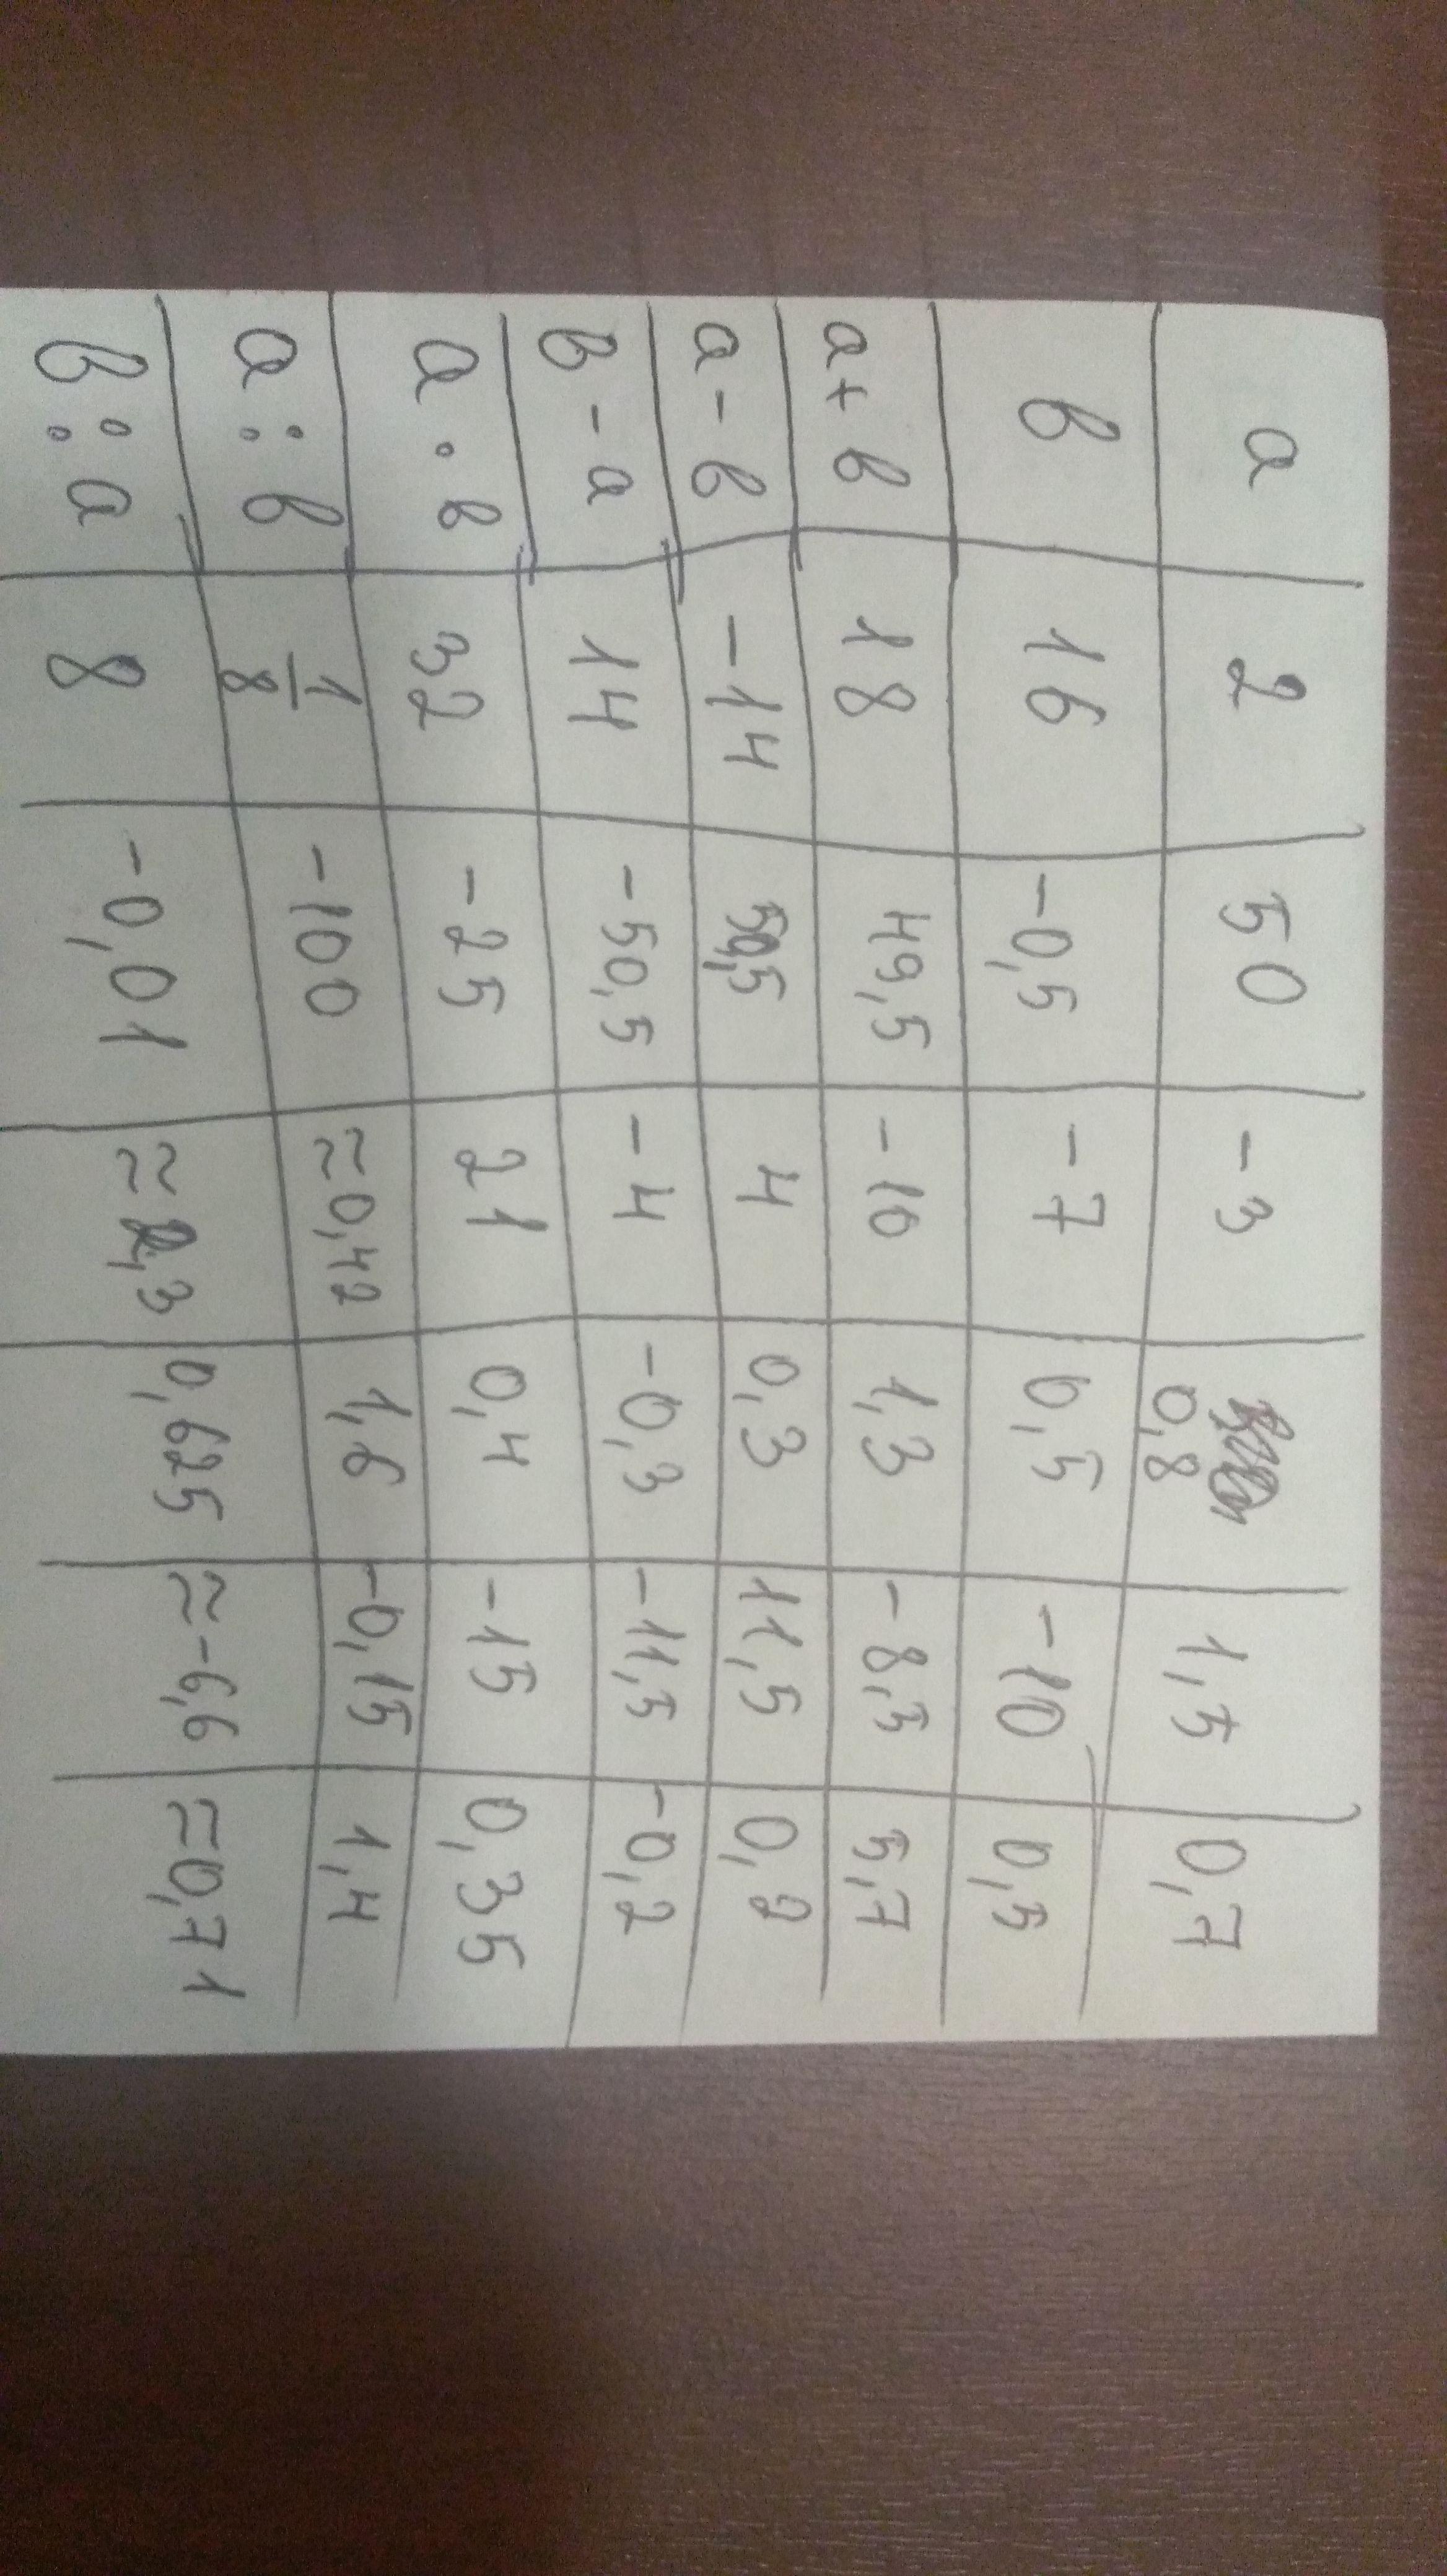 a 2 50 -3 0,8 1,5 0,7
в 16 -0,5 -7 0,5 -10 0,5
a+в 18 49,5 -10 1,3 -8,5 5,7
a-в -14 50,5 4 0,3 11,5 0,2
в-a 14 -50,5 -4 -0,3 -11,5 -0,2
a·в 32 -25 21 0,4 -15 0,35
a:в 1/8 -100 ≈0,42 1,6 -0,15 1,4
в:a 8 -0,01 ≈2,3 0,625 ≈-6,6 ≈0,71